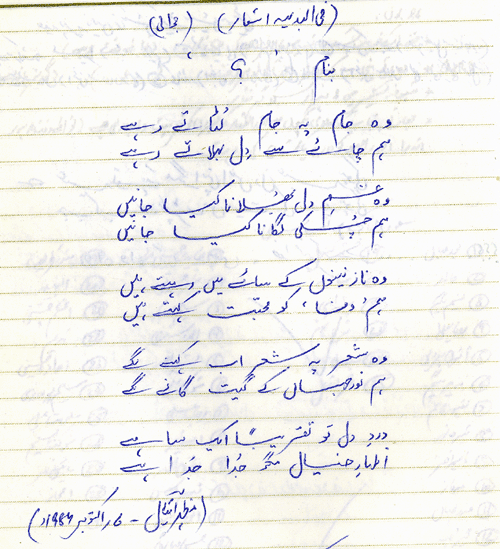 (فی البدیہہ اشعار) (جوابی)
بنام ؟
وہ جام پہ جام لُٹاتے رہے
ہم چائے سے دِل بہلاتے رہے
وہ غمِ دل بھُلانا کیا جانیں
ہم چُسکی لگانا کیا جانیں
وہ نازنینوں کے سائے میں رہتے ہیں
ہم 'وفا' کو محبت کہتے ہیں
وہ شعر پہ شعر اب کہنے لگے
ہم نورجہاں کے گیت گانے لگے
دردِ دل تو تقریباً ایک سا ہے
اظہارِ خیال مگر جُدا جُدا ہے
(اکتوبر ۱۹۸۶ء)